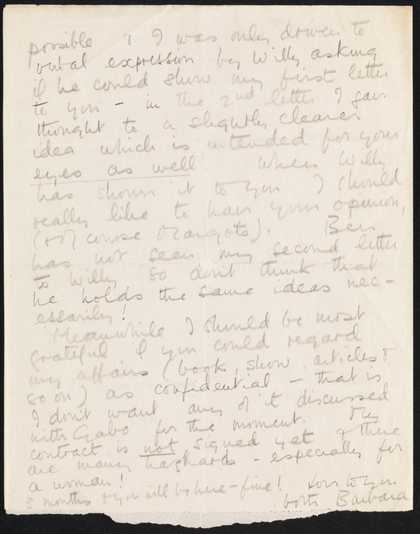 possible & I was only driven to
verbal expression by Willy asking
if he could show my first letter
to you – in the 2nd letter I gave
thought to a slightly clearer
idea which is intended for your
eyes as well When Willy
has shown it to you I should
really like to have your opinion,
(& of course Margot's). Ben
has not seen my second letter
to Willy so don't think that
he holds the same ideas nec-
essarily!
Meanwhile I should be most
grateful if you could regard
my affairs (book, show, articles &
so on) as confidential – that is
I don't want any of it discussed
with Gabo for the moment. The
contract is not signed yet & there
are many hazards – especially for
a woman!
3 months & you will be here – fine! love to you
both Barbara